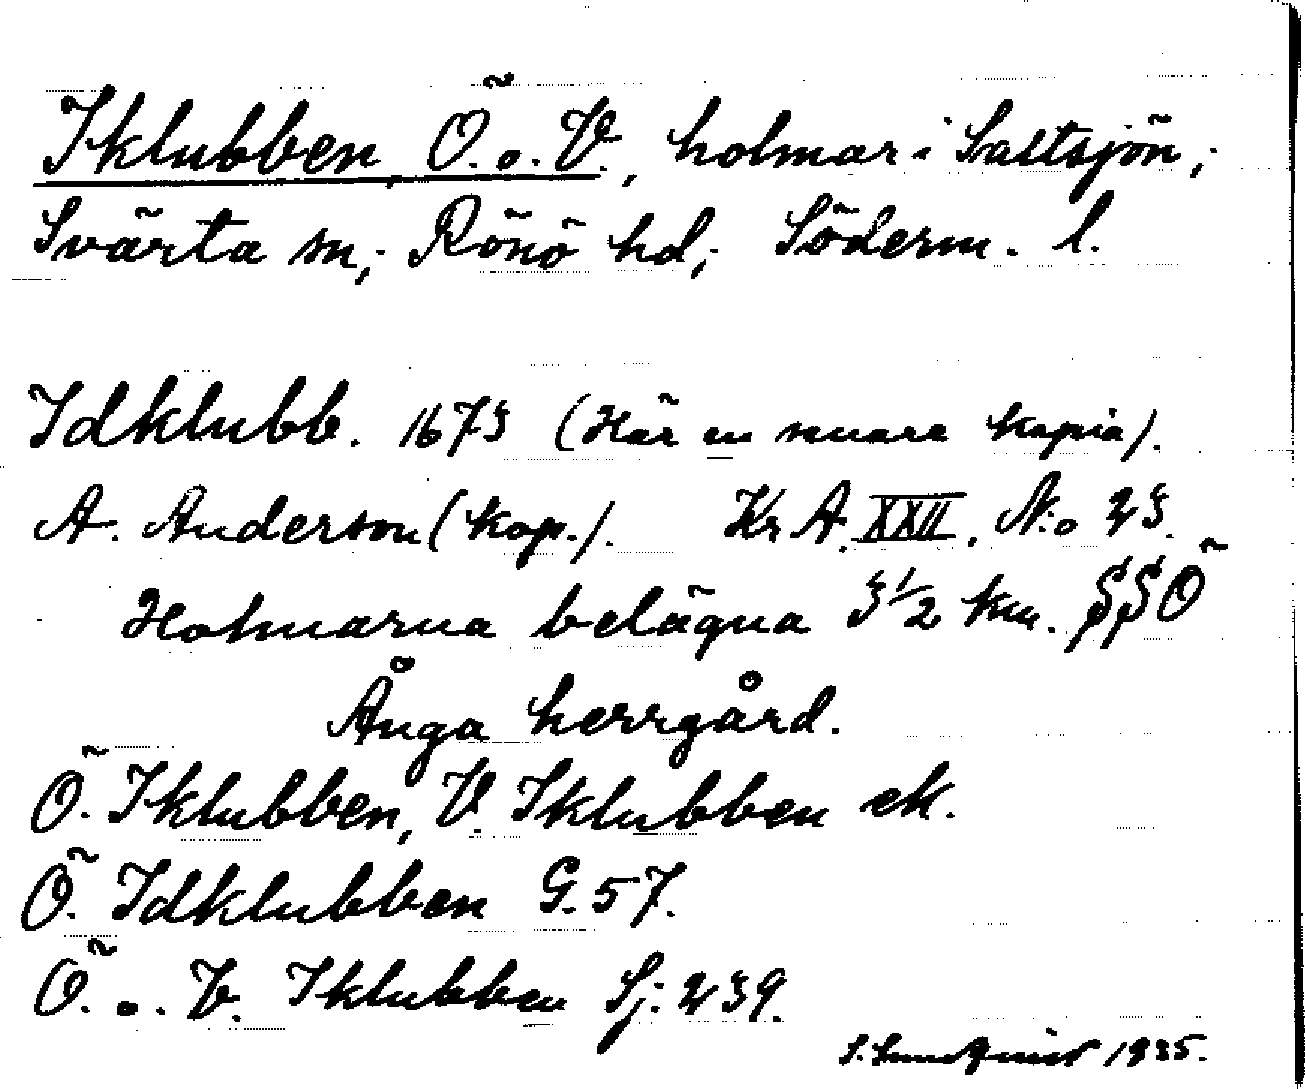 Iklubben, Ö. o. V., holmar i Saltsjön,
Svärta sn, Rönö hd, Söderm. l.
Idklubb. 1673 (Här en senare kopia).
A. Anderson (kop.). Kr. A. XXII. N:o 23.
Holmarna belägna 3 1/2 km. SSÖ
Ånga herrgård.
Ö. Iklubben, V. Iklubben ek.
Ö. Idklubben G. 57.
Ö. o. V. Iklubben Sj: 239.
S. Sundqvist 1935.